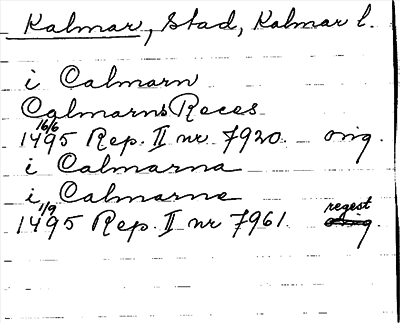 Kalmar, Stad, Kalmar l.
i Calmarn
Calmarns Reces
16/6
1495 Rep. II nr 7920. orig.
i Calmarna
i Calmarne
1/9
1495 Rep. II nr 7961. regest
orig.